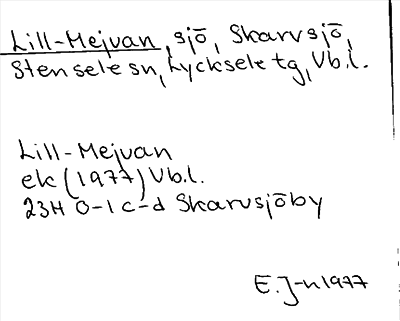 Lill-Mejvan, sjö, Skarvsjö,
Stensele sn, Lycksele tg, Vb.l.
Lill-Mejvan
ek (1977) Vb.l.
23H 0-1 c-d Skarvsjöby
E.J-n 1977